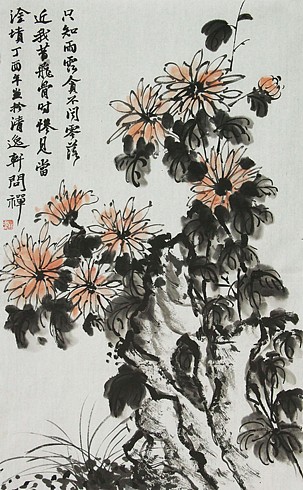 只知雨露貪不閱零落
近我昔飛骨时慘見當
塗墳丁酉年並於清逸軒問禪